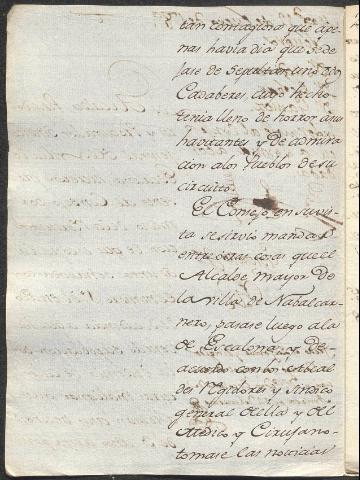 tan contagiosa que ape-
nas havia dia que se de-
jase de sepultar uno ò dos
Cadaberes, cuio hecho
tenia lleno de horror à sus
havitantes y de admira
cion a los Pueblos de su
circuito.
El Consejo, en su vis-
ta se sirvio mandar
entre otras cosas que el
Alcalde mayor de
la villa de Nabalcar-
nero, pasase luego a la
de Escalona, y de
acuerdo con los Alcal
des Regidores y Sindico
general de ella y del
Medico y Cirujano
tomase las noticias